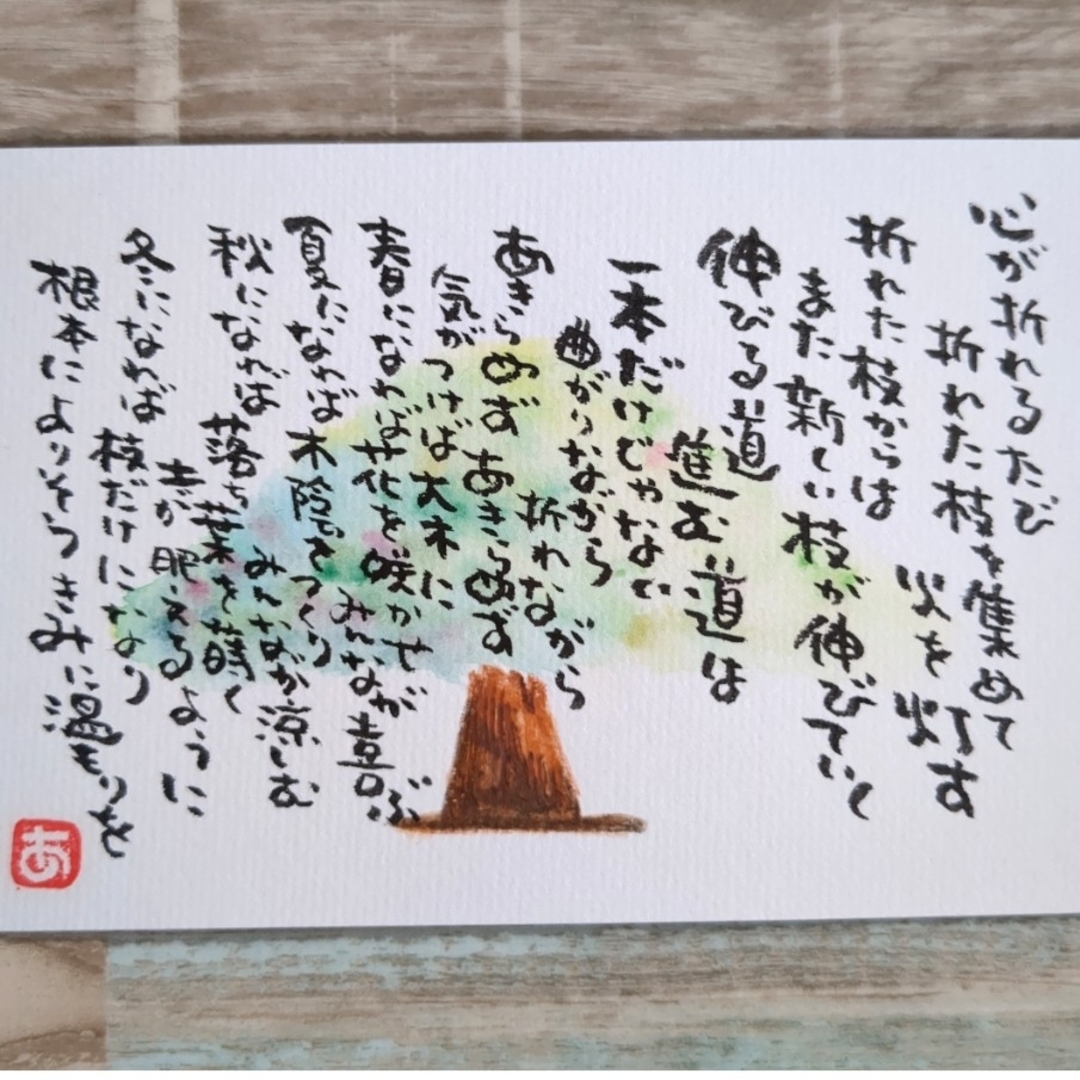 心が折れるたび
折れた枝を集めて
火を灯す
折れた枝からは
また新しい枝が伸びていく
伸びる道
進む道は
一本だけじゃない
曲がりながら
折れながら
あきらめず あきらめず
気がつけば大木に
春になれば花を咲かせ
みんなが喜ぶ
夏になれば木陰をつくり
みんなが涼しむ
秋になれば 落ち葉を蒔く
土が肥えるように
冬になれば 枝だけになり
根本によりそうきみに温もりを
あ